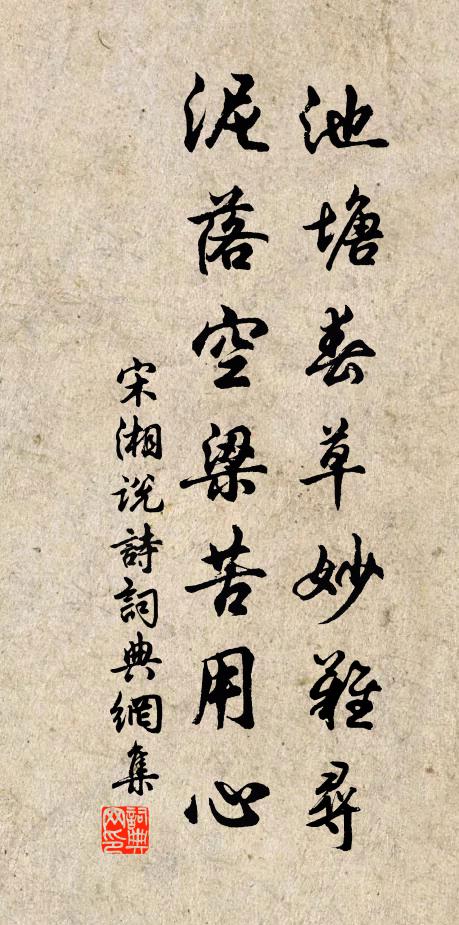 池塘春草妙難尋
泥落空梁苦用心
宋湘說詩詞典網集
詞典網印